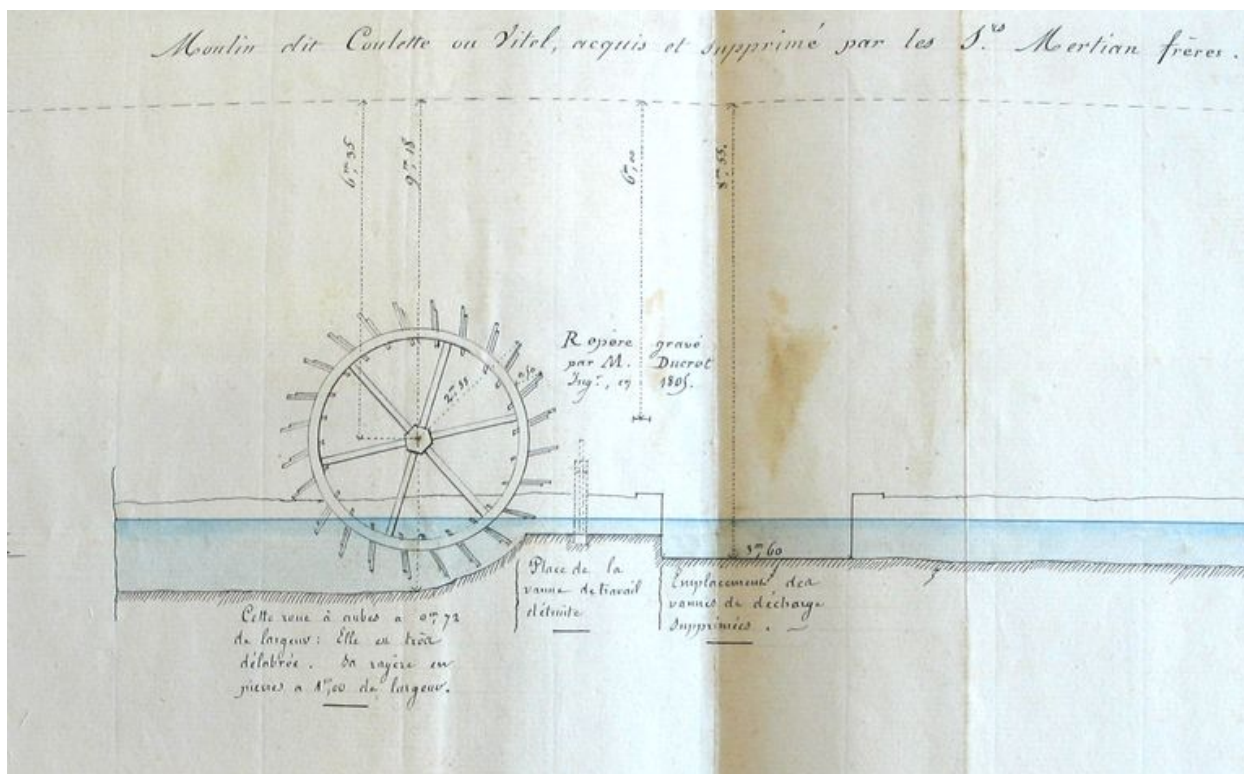 Moulin dit Coulette ou Vitel, acquis et supprimé par les S.rs Mertian frères.
6m,35
9m,18
6m,00
8m,55.
Repère gravé
par M. Ducrot
Ingr., en 1805.
0,50
3m,60
Place de la
vanne de travail
détruite
Emplacement des
vannes de décharge
supprimées.
Cette roue à aubes a 0m,72
de largeur: Elle est très
délabrée. Sa rayère en
pierres a 1m,00 de largeur.